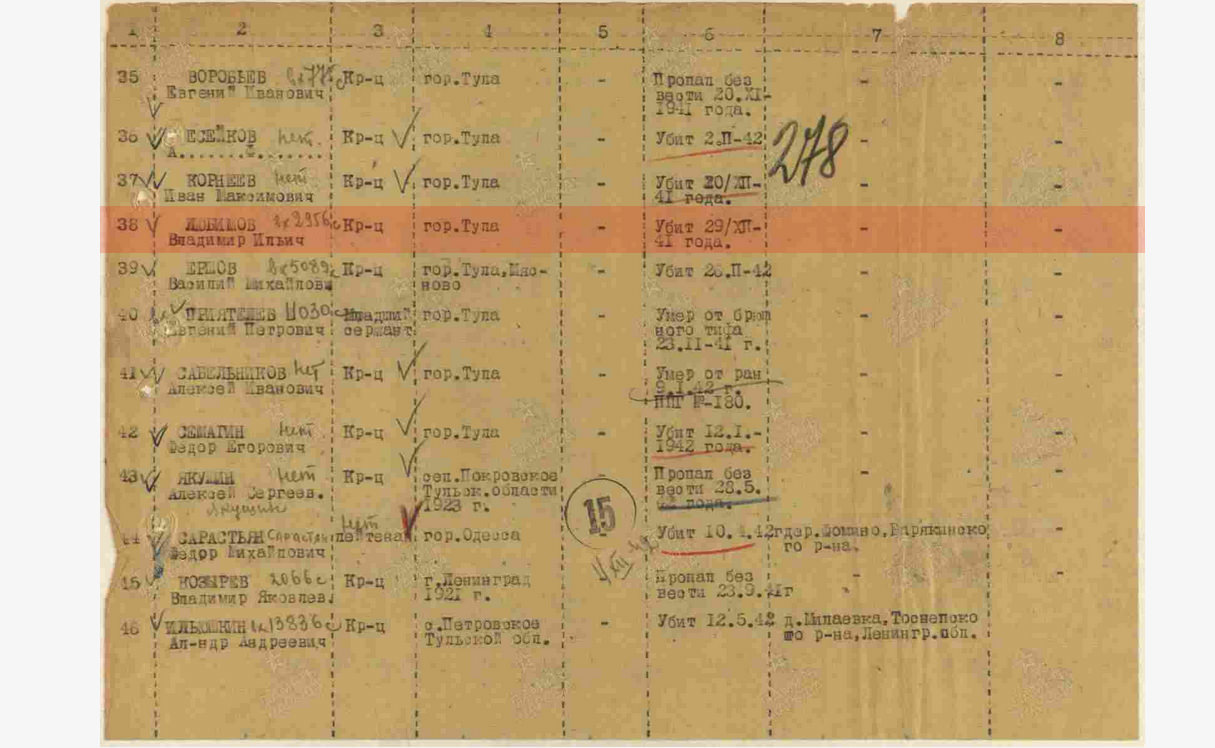 1 2 3 4 5 6 7 8
35 ВОРОБЬЕВ Кр-ц гор.Тула - Пропал без - -
Евгений Иванович вести 20.XI-
1941 года.
36 ЕСЕЙКОВ нет Кр-ц гор.Тула - Убит 2.П-42 278 - -
А.......И.......
37 КОРНЕЕВ нет Кр-ц гор.Тула - Убит 20/ХП- - -
Иван Максимович 41 года.
38 ЛЮБИМОВ вх2956с Кр-ц гор.Тула - Убит 29/ХП- - -
Владимир Ильич 41 года.
39 ЕРШОВ вх5089с Кр-ц гор.Тула,Мяс- - Убит 26.П-42 - -
Василий Михайлови ново
40 ПРИЯТЕЛЕВ 11030с Младший гор.Тула - Умер от брюш - -
Евгений Петрович сержант ного тифа
23.II-41 г.
41 САБЕЛЬНИКОВ нет Кр-ц гор.Тула - Умер от ран - -
Алексей Иванович 9.1.42 г.
ППГ №-180.
42 СЕМАГИН нет Кр-ц гор.Тула - Убит 12.I.- - -
Федор Егорович 1942 года.
43 ЯКУШИН нет Кр-ц сел.Покровское - Пропал без - -
Алексей Сергеев. Тульск.области вести 28.5.
Якушин 1923 г. года.
15
44 САРАСТЬЯН Сарастьян нет лейтенан гор.Одесса - Убит 10.4.42г дер.Фомино,Барякинско -
Федор Михайлович го р-на.
45 КОЗЫРЕВ 2066с Кр-ц г.Ленинград Пропал без - -
Владимир Яковлев. 1921 г. вести 23.9.41г
46 ИЛЬЮШКИН вх13836с Кр-ц с.Петровское - Убит 12.5.42 д.Милаевка,Тоснелско -
Ал-ндр Андреевич Тульской обл. го р-на,Ленингр.обл.